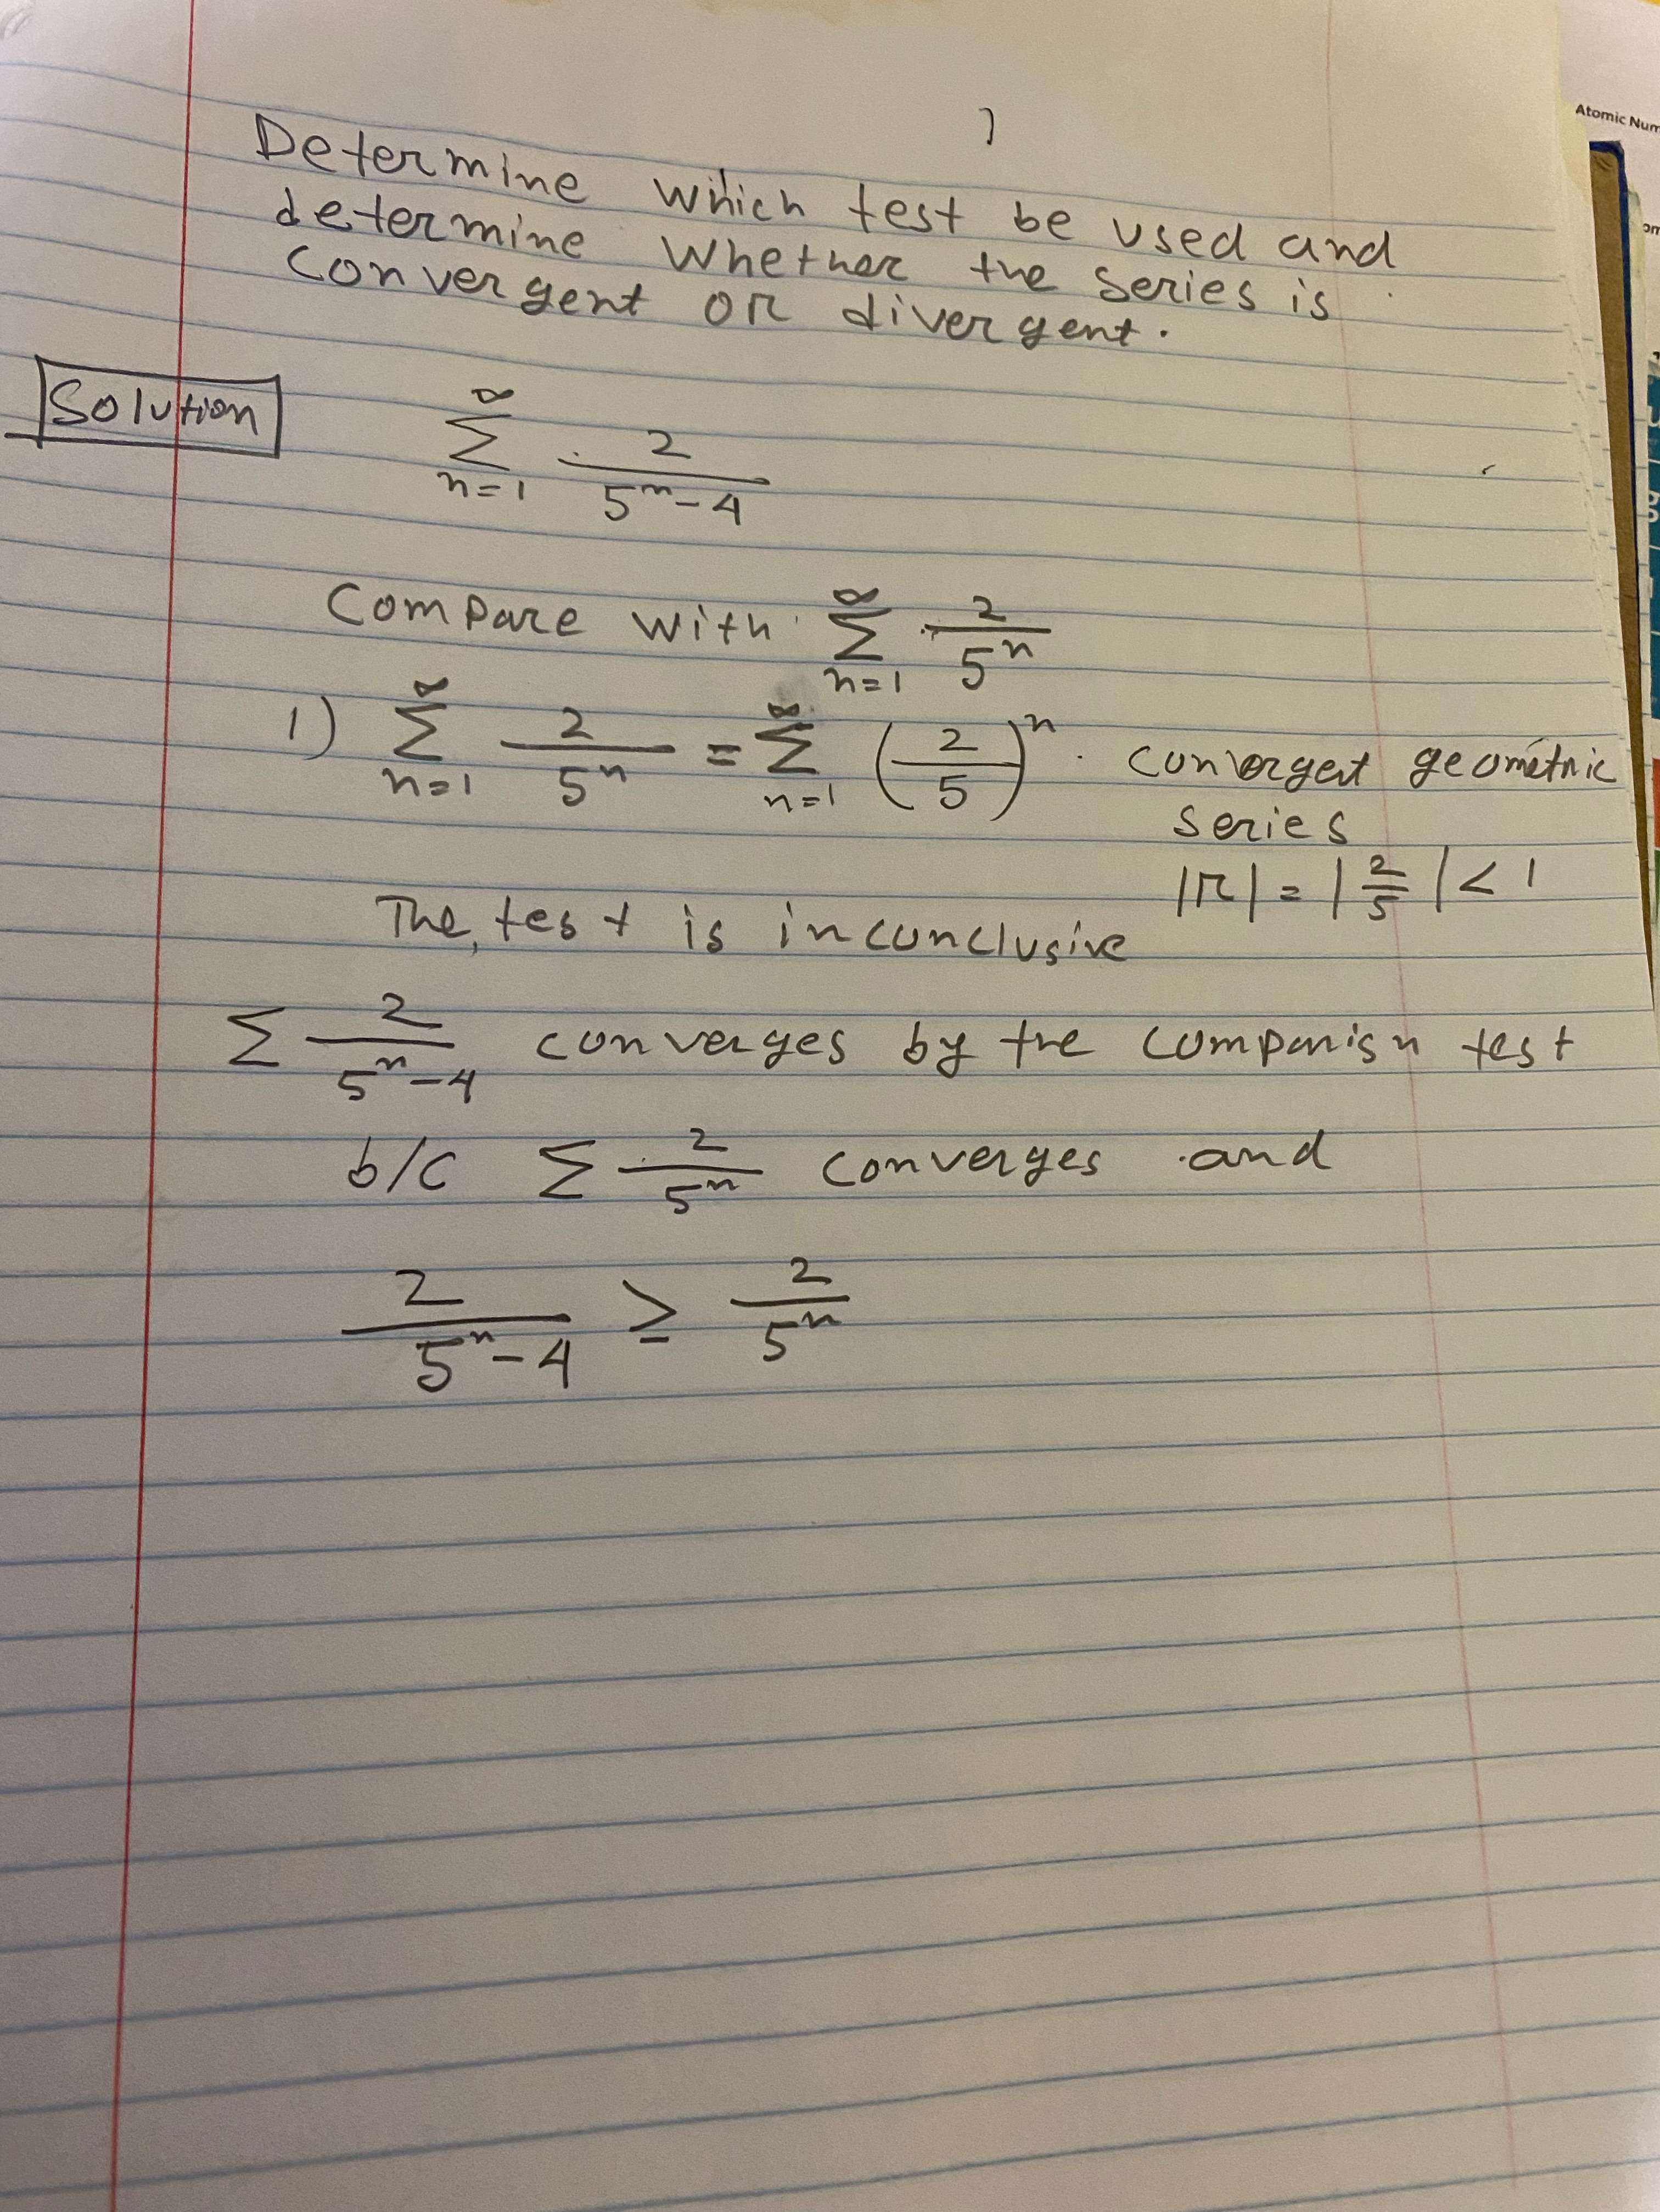 Determine which test be used and
determine whether the series is
convergent or divergent.
Solution
∞ Σ n=1 2/(5ⁿ-4)
Compare with ∞ Σ n=1 2/5ⁿ
1) ∞ Σ n=1 2/5ⁿ = ∞ Σ n=1 (2/5)ⁿ . convergent geometric
series
|r| = |2/5| < 1
The, test is inconclusive
Σ 2/(5ⁿ-4) converges by the comparisn test
b/c Σ 2/5ⁿ converges and
2/(5ⁿ-4) ≥ 2/5ⁿ
Atomic Num